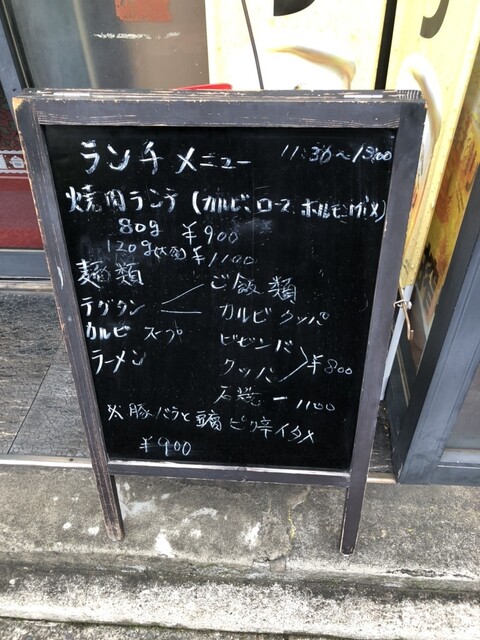 ランチ メニュー 11:30～15:00
焼肉ランチ (カルビ、ロース、ホルモンMiX)
80g ¥900
120g(大盛) ¥1100
麺類
ご飯類
テグタン
カルビ スープ
ラーメン
カルビ クッパ
ビビンバ
クッパ
¥800
石焼 ー 1100
※豚バラと豆腐ピリ辛イタメ
¥900